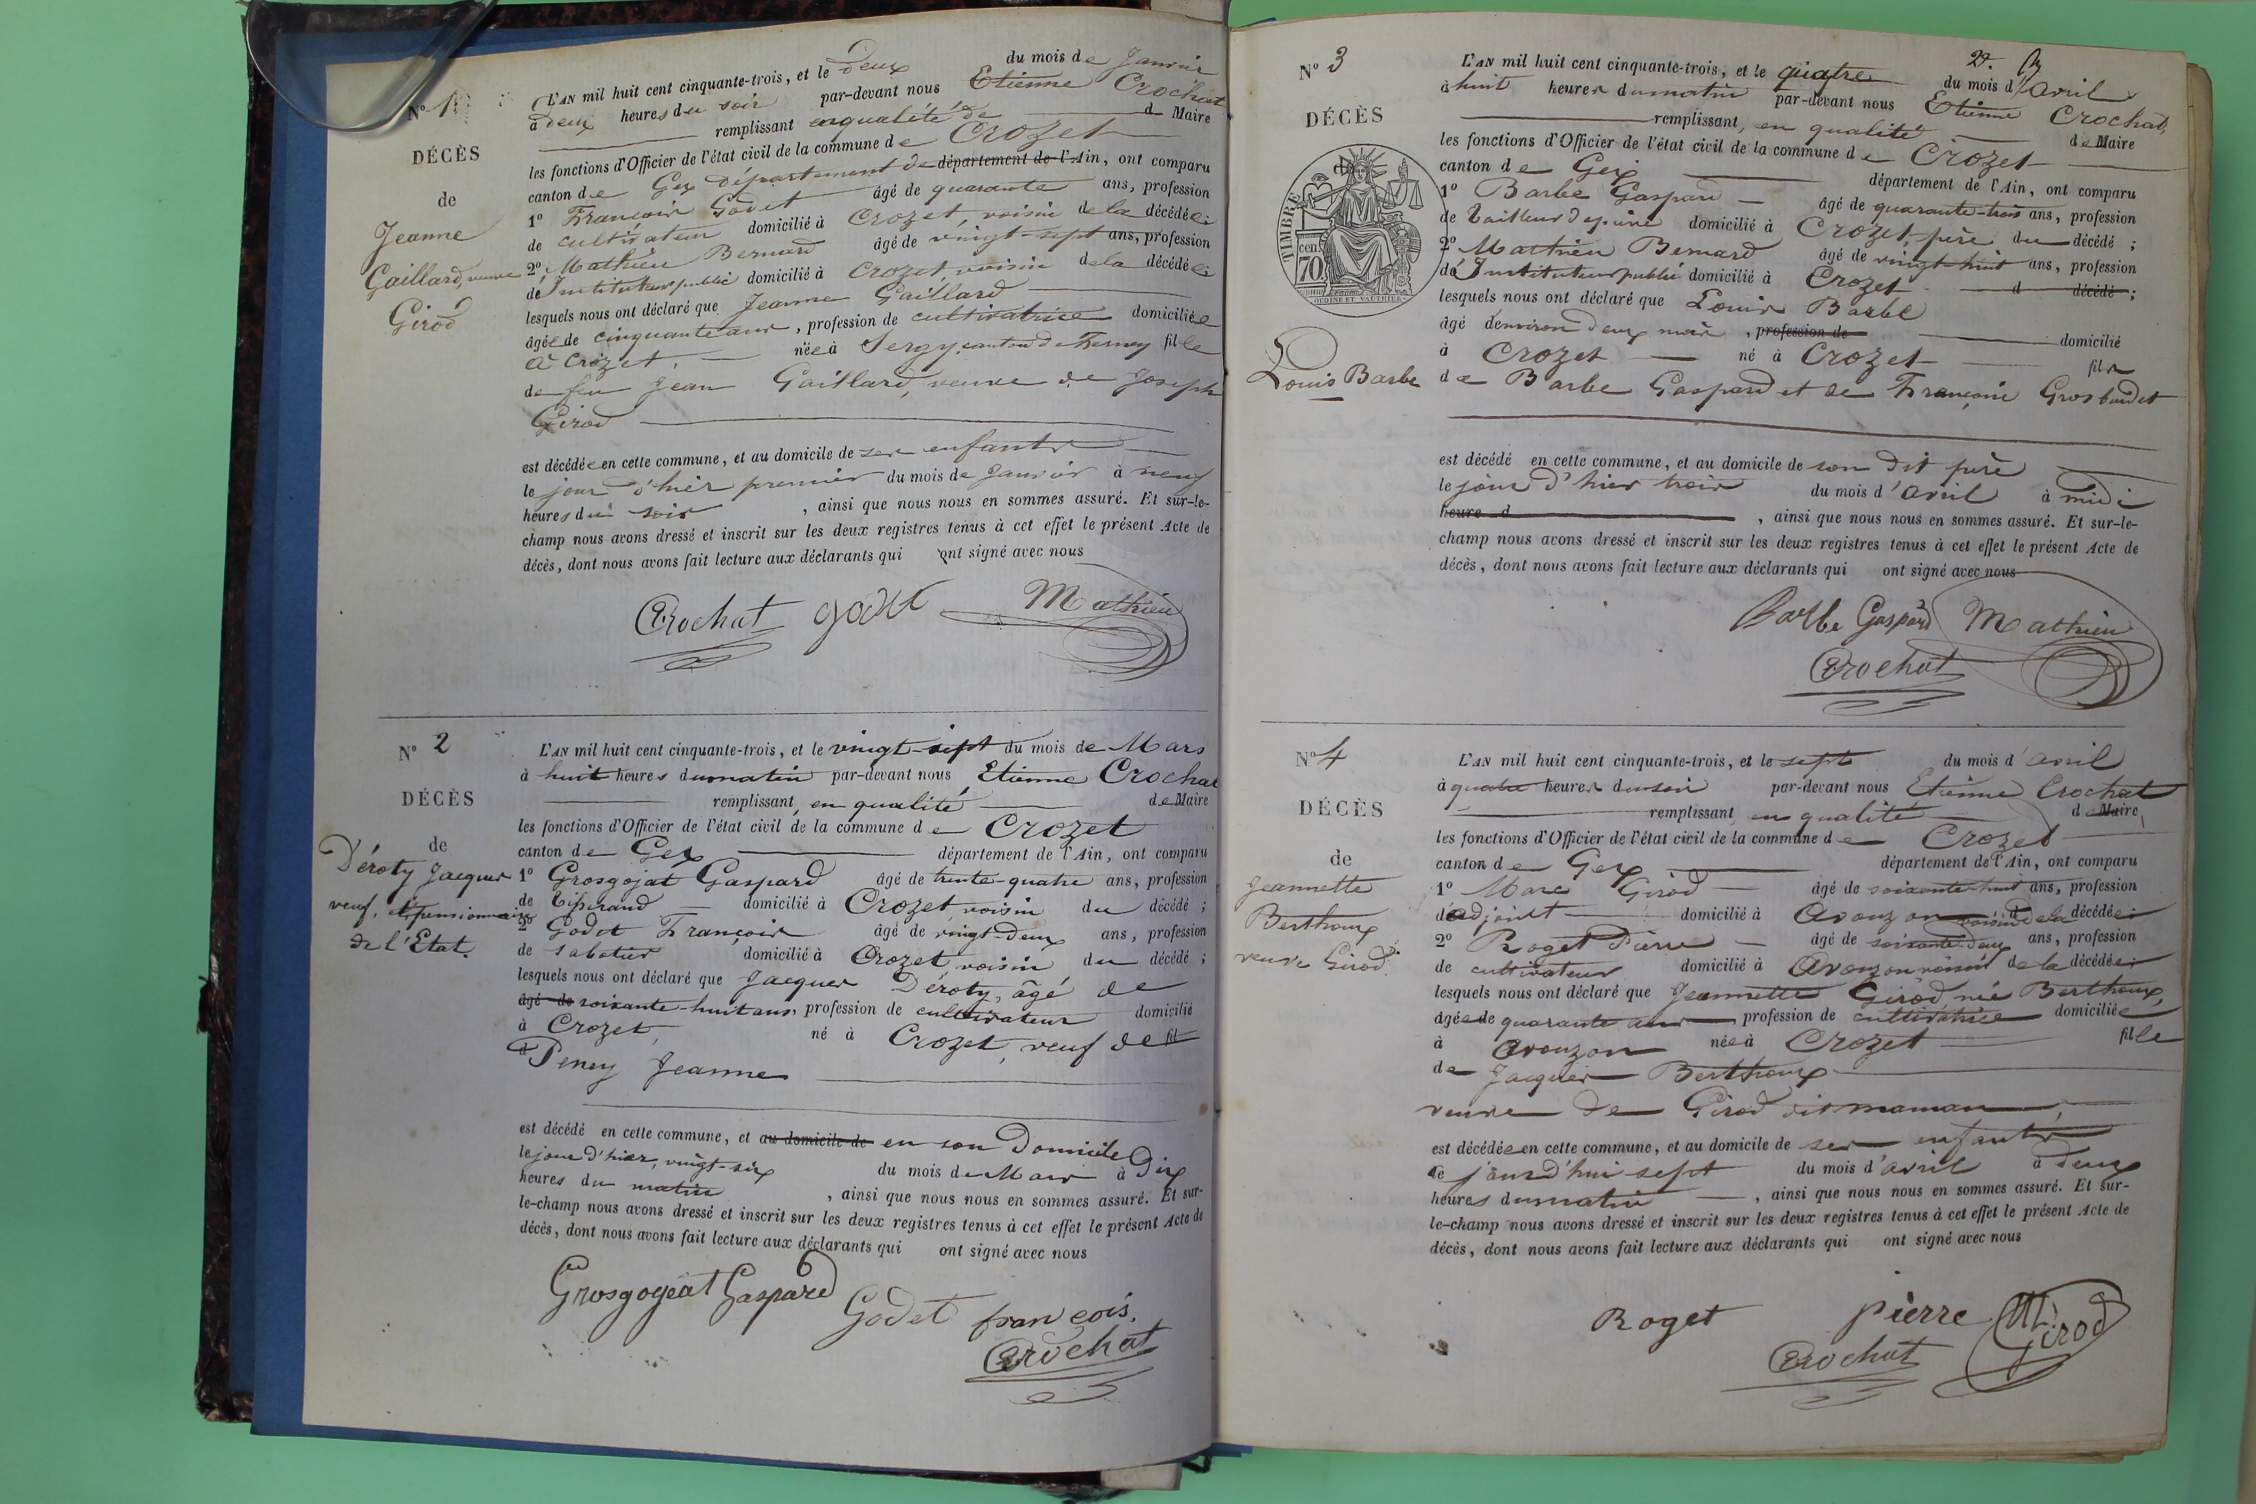 N° 1
DÉCÈS
de
Jeanne
Gaillard, veuve
Girod
L'AN mil huit cent cinquante-trois, et le deux du mois de Janvier
à deux heures du soir par-devant nous Etienne Crochat
remplissant en qualité de de Maire
les fonctions d'Officier de l'état civil de la commune de Crozet
canton de Gex Département de département de l'Ain, ont comparu
1° François Godet âgé de quarante ans, profession
de cultivateur domicilié à Crozet, voisin de la décédée;
2° Mathieu Bernard âgé de vingt-sept ans, profession
de Instituteur public domicilié à Crozet, voisin de la décédée;
lesquels nous ont déclaré que Jeanne Gaillard
âgée de cinquante ans, profession de cultivatrice domiciliée
à Crozet, née à Sergy, canton de Ferney fille
de feu Jean Gaillard, veuve de Joseph
Girod
est décédée en cette commune, et au domicile de ses enfants
le jour d'hier premier du mois de Janvier à neuf
heures du soir, ainsi que nous nous en sommes assuré. Et sur-le-
champ nous avons dressé et inscrit sur les deux registres tenus à cet effet le présent Acte de
décès, dont nous avons fait lecture aux déclarants qui ont signé avec nous
Crochat godet Mathieu
N° 2
DÉCÈS
de
Déroty Jacques
veuf, et pensionnaire
de l'Etat.
L'AN mil huit cent cinquante-trois, et le vingt-sept du mois de Mars
à huit heures du matin par-devant nous Etienne Crochat
remplissant en qualité de Maire
les fonctions d'Officier de l'état civil de la commune de Crozet
canton de Gex département de l'Ain, ont comparu
1° Grosgojat Gaspard âgé de trente-quatre ans, profession
de Tisserand domicilié à Crozet, voisin du décédé;
2° Godet François âgé de vingt-deux ans, profession
de sabotier domicilié à Crozet, voisin du décédé;
lesquels nous ont déclaré que Jacques Déroty, âgé de
âgé de soixante-huit ans, profession de cultivateur domicilié
à Crozet, né à Crozet, veuf de fil
d Peney Jeanne
est décédé en cette commune, et au domicile de en son Domicile
le jour d'hier, vingt-six du mois de Mars à Dix
heures du matin, ainsi que nous nous en sommes assuré. Et sur-
le-champ nous avons dressé et inscrit sur les deux registres tenus à cet effet le présent Acte de
décès, dont nous avons fait lecture aux déclarants qui ont signé avec nous
Grosgogeat Gaspard Godet françois.
Crochat
N° 3
DÉCÈS
de
TIMBRE
70 cen.
OUDINÉ ET VAUTHIER
Louis Barbe
L'AN mil huit cent cinquante-trois, et le quatre du mois d'avril
à huit heures du matin par-devant nous Etienne Crochat,
remplissant, en qualité de Maire
les fonctions d'Officier de l'état civil de la commune de Crozet
canton de Gex département de l'Ain, ont comparu
1° Barbe Gaspard âgé de quarante-trois ans, profession
de tailleur de pierre domicilié à Crozet, père du décédé;
2° Mathieu Bernard âgé de vingt-huit ans, profession
d'Instituteur public domicilié à Crozet d décédé;
lesquels nous ont déclaré que Louis Barbe
âgé d'environ deux mois, profession de domicilié
à Crozet né à Crozet fils
de Barbe Gaspard et de Françoise Grosbaudet
est décédé en cette commune, et au domicile de son dit père
le jour d'hier trois du mois d'avril à midi
heure d, ainsi que nous nous en sommes assuré. Et sur-le-
champ nous avons dressé et inscrit sur les deux registres tenus à cet effet le présent Acte de
décès, dont nous avons fait lecture aux déclarants qui ont signé avec nous
Barbe Gaspard Mathieu
Crochat
N° 4
DÉCÈS
de
Jeannette
Berthoux
veuve Girod.
L'AN mil huit cent cinquante-trois, et le sept du mois d'avril
à quatre heures du soir par-devant nous Etienne Crochat
remplissant en qualité de Maire,
les fonctions d'Officier de l'état civil de la commune de Crozet
canton de Gex département de l'Ain, ont comparu
1° Marc Girod âgé de soixante-huit ans, profession
d'adjoint domicilié à Avouzon voisin de la décédée;
2° Roget Pierre âgé de soixante-deux ans, profession
de cultivateur domicilié à Avouzon voisin de la décédée;
lesquels nous ont déclaré que Jeannette Girod, née Berthoux,
âgée de quarante ans profession de cultivatrice domiciliée
à Avouzon née à Crozet fille
de Jacques Berthoux
veuve de Girod dit maman,
est décédée en cette commune, et au domicile de ses enfants
le jourd'hui sept du mois d'avril à deux
heures du matin, ainsi que nous nous en sommes assuré. Et sur-
le-champ nous avons dressé et inscrit sur les deux registres tenus à cet effet le présent Acte de
décès, dont nous avons fait lecture aux déclarants qui ont signé avec nous
Roget pierre M. Girod
Crochat